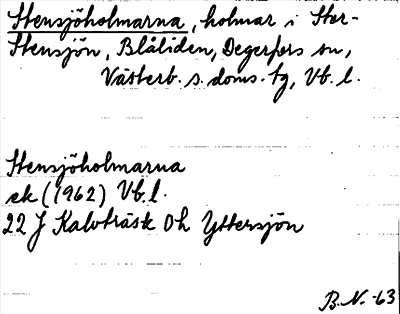 Stensjöholmarna, holmar i Stor-
Stensjön, Blåliden, Degerfors sn,
Västerb. s. doms. tg, Vb. l.
Stensjöholmarna
ek (1962) Vb. l.
22 J Kalvträsk Oh Yttersjön
B.N. -63